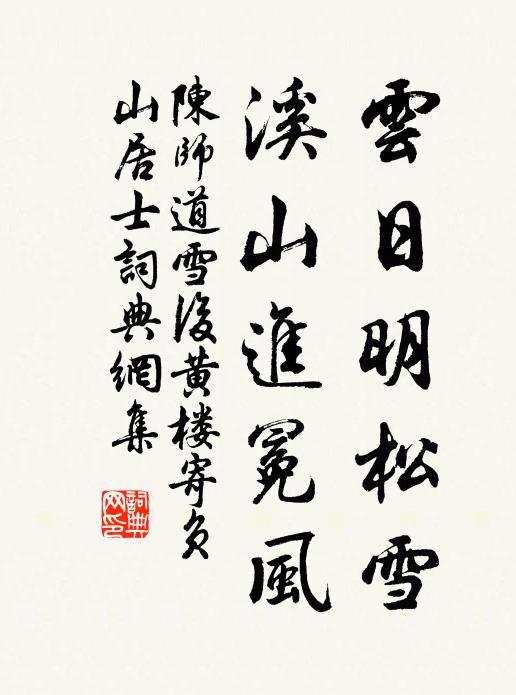 雲日明松雪
溪山進冕風
陳師道雪後黄楼寄负
山居士詞典網集
詞典
网印